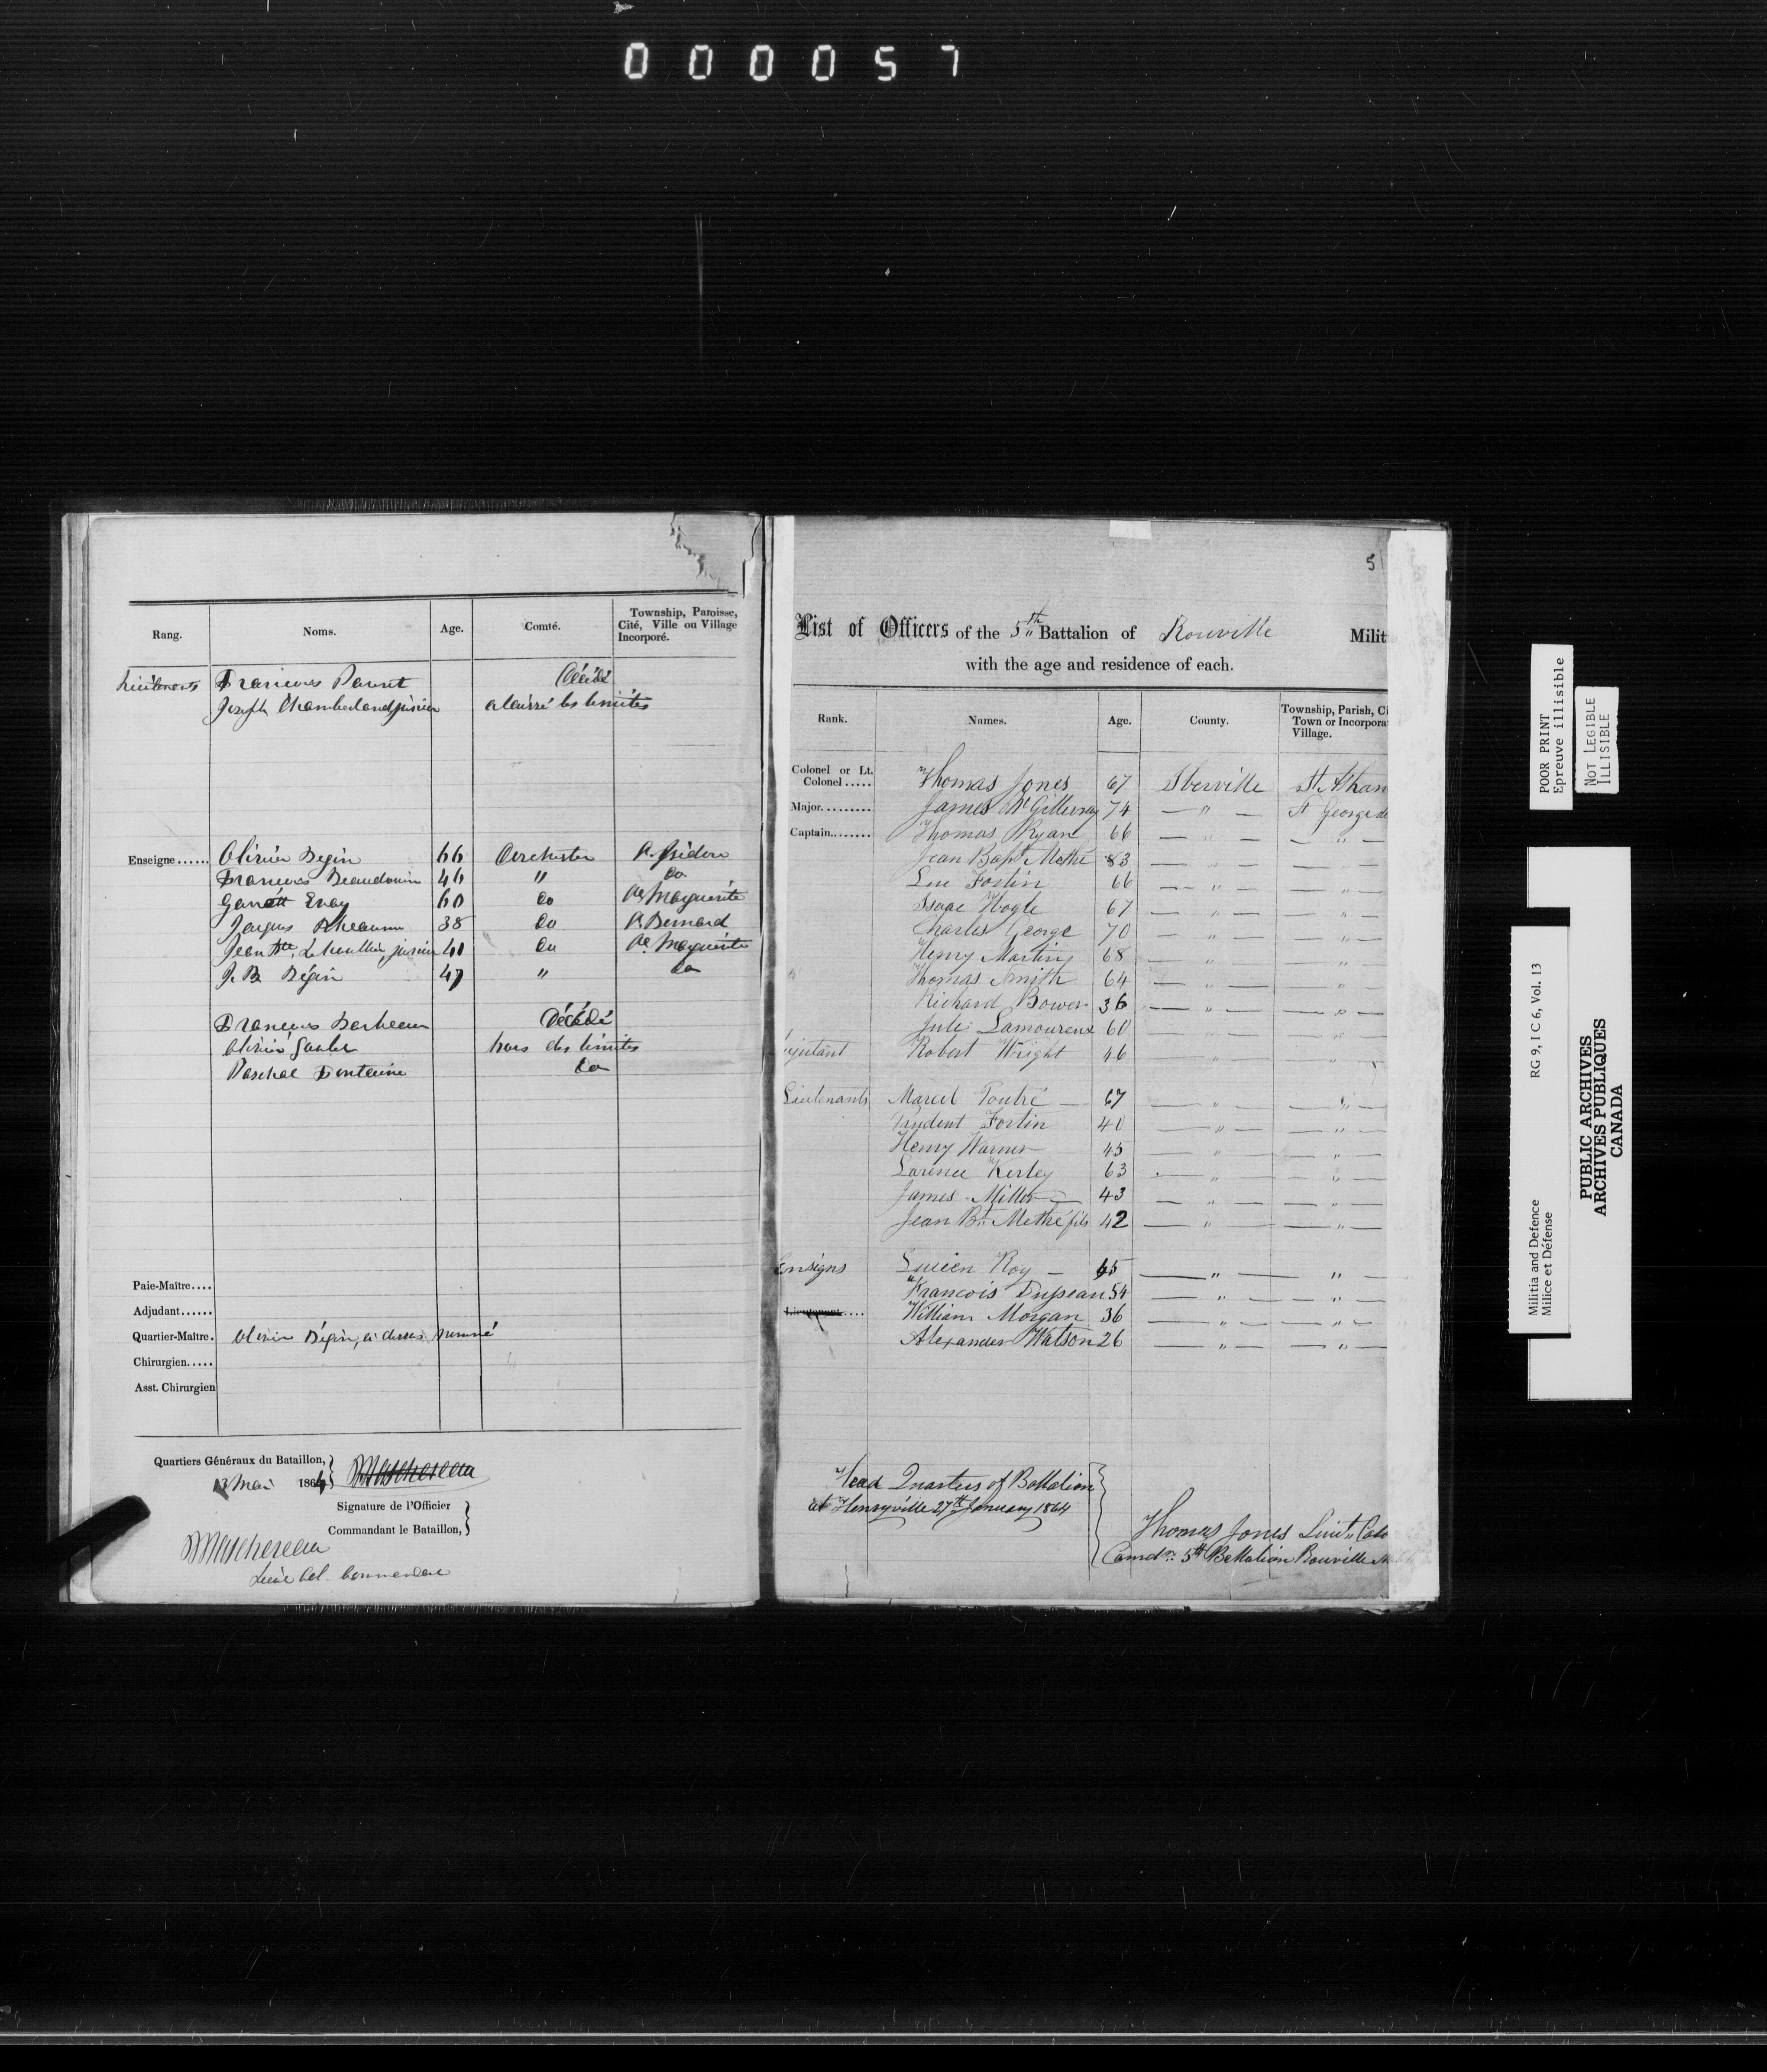 000057
Rang. Noms. Age. Comté. Township, Paroisse, Cité, Ville ou Village Incorporé.
Lieutenants François Parent Décédé
Joseph Chamberland junior a laissé les limites
Enseigne...... Olivier Begin 66 Dorchester St. Isidore
François Beaudouin 46 " do
Garrett Enay 60 do Ste Marguerite
Jacques Rheaume 38 do St. Bernard
Jean Bte. junior 41 do Ste Marguerite
J. B. Bégin 47 " do
François Barbeau Décédé
Olivier hors des limites
Paschal Fontaine do
Paie-Maître....
Adjudant......
Quartier-Maître. Olivier Bégin, ci dessus nommé
Chirurgien.....
Asst. Chirurgien
Quartiers Généraux du Bataillon,
13 Mai 1864
Signature de l'Officier
Commandant le Bataillon,
Lieut. Col. Commandant
5
List of Officers of the 5th Battalion of Rouville Milit
with the age and residence of each.
Rank. Names. Age. County. Township, Parish, Ci Town or Incorporat Village.
Colonel or Lt. Colonel..... Thomas Jones 67 Iberville St. Athan
Major......... James McGillvray 74 — " — St George de
Captain........ Thomas Ryan 66 — " — — " —
Jean Bapt. Methé 83 — " — — " —
Luc Fortin 66 — " — — " —
Isaac Hogle 67 — " — — " —
Charles George 70 — " — — " —
Henry Martin 68 — " — — " —
Thomas Smith 64 — " — — " —
Richard Bower 36 — " — — " —
Jule Lamoureux 60 — " — — " —
djutant Robert Wright 46 " "
Lieutenants Marcel Poutré — 67 — " — — " —
Prudent Fortin 40 — " — — " —
Henry Warner 45 — " — — " —
Larence Kerley 63 — " — — " —
James Miller 43 — " — — " —
Jean Bt. Methé fils 42 — " — — " —
Ensigns Lucien Roy — 65 — " — " —
Francois Dupeau 54 — " — — " —
Lieutenant.... William Morgan 36 — " — — " —
Alexander Watson 26 — " — — " —
Head Quarters of Battalion
at Henryville 27th January 1864
Thomas Jones Lieut. Colo
Comdr. 5th Battalion Rouville
POOR PRINT
Epreuve illisible
NOT LEGIBLE
ILLISIBLE
Militia and Defence RG 9, I C 6, Vol. 13
Milice et Défense
PUBLIC ARCHIVES
ARCHIVES PUBLIQUES
CANADA